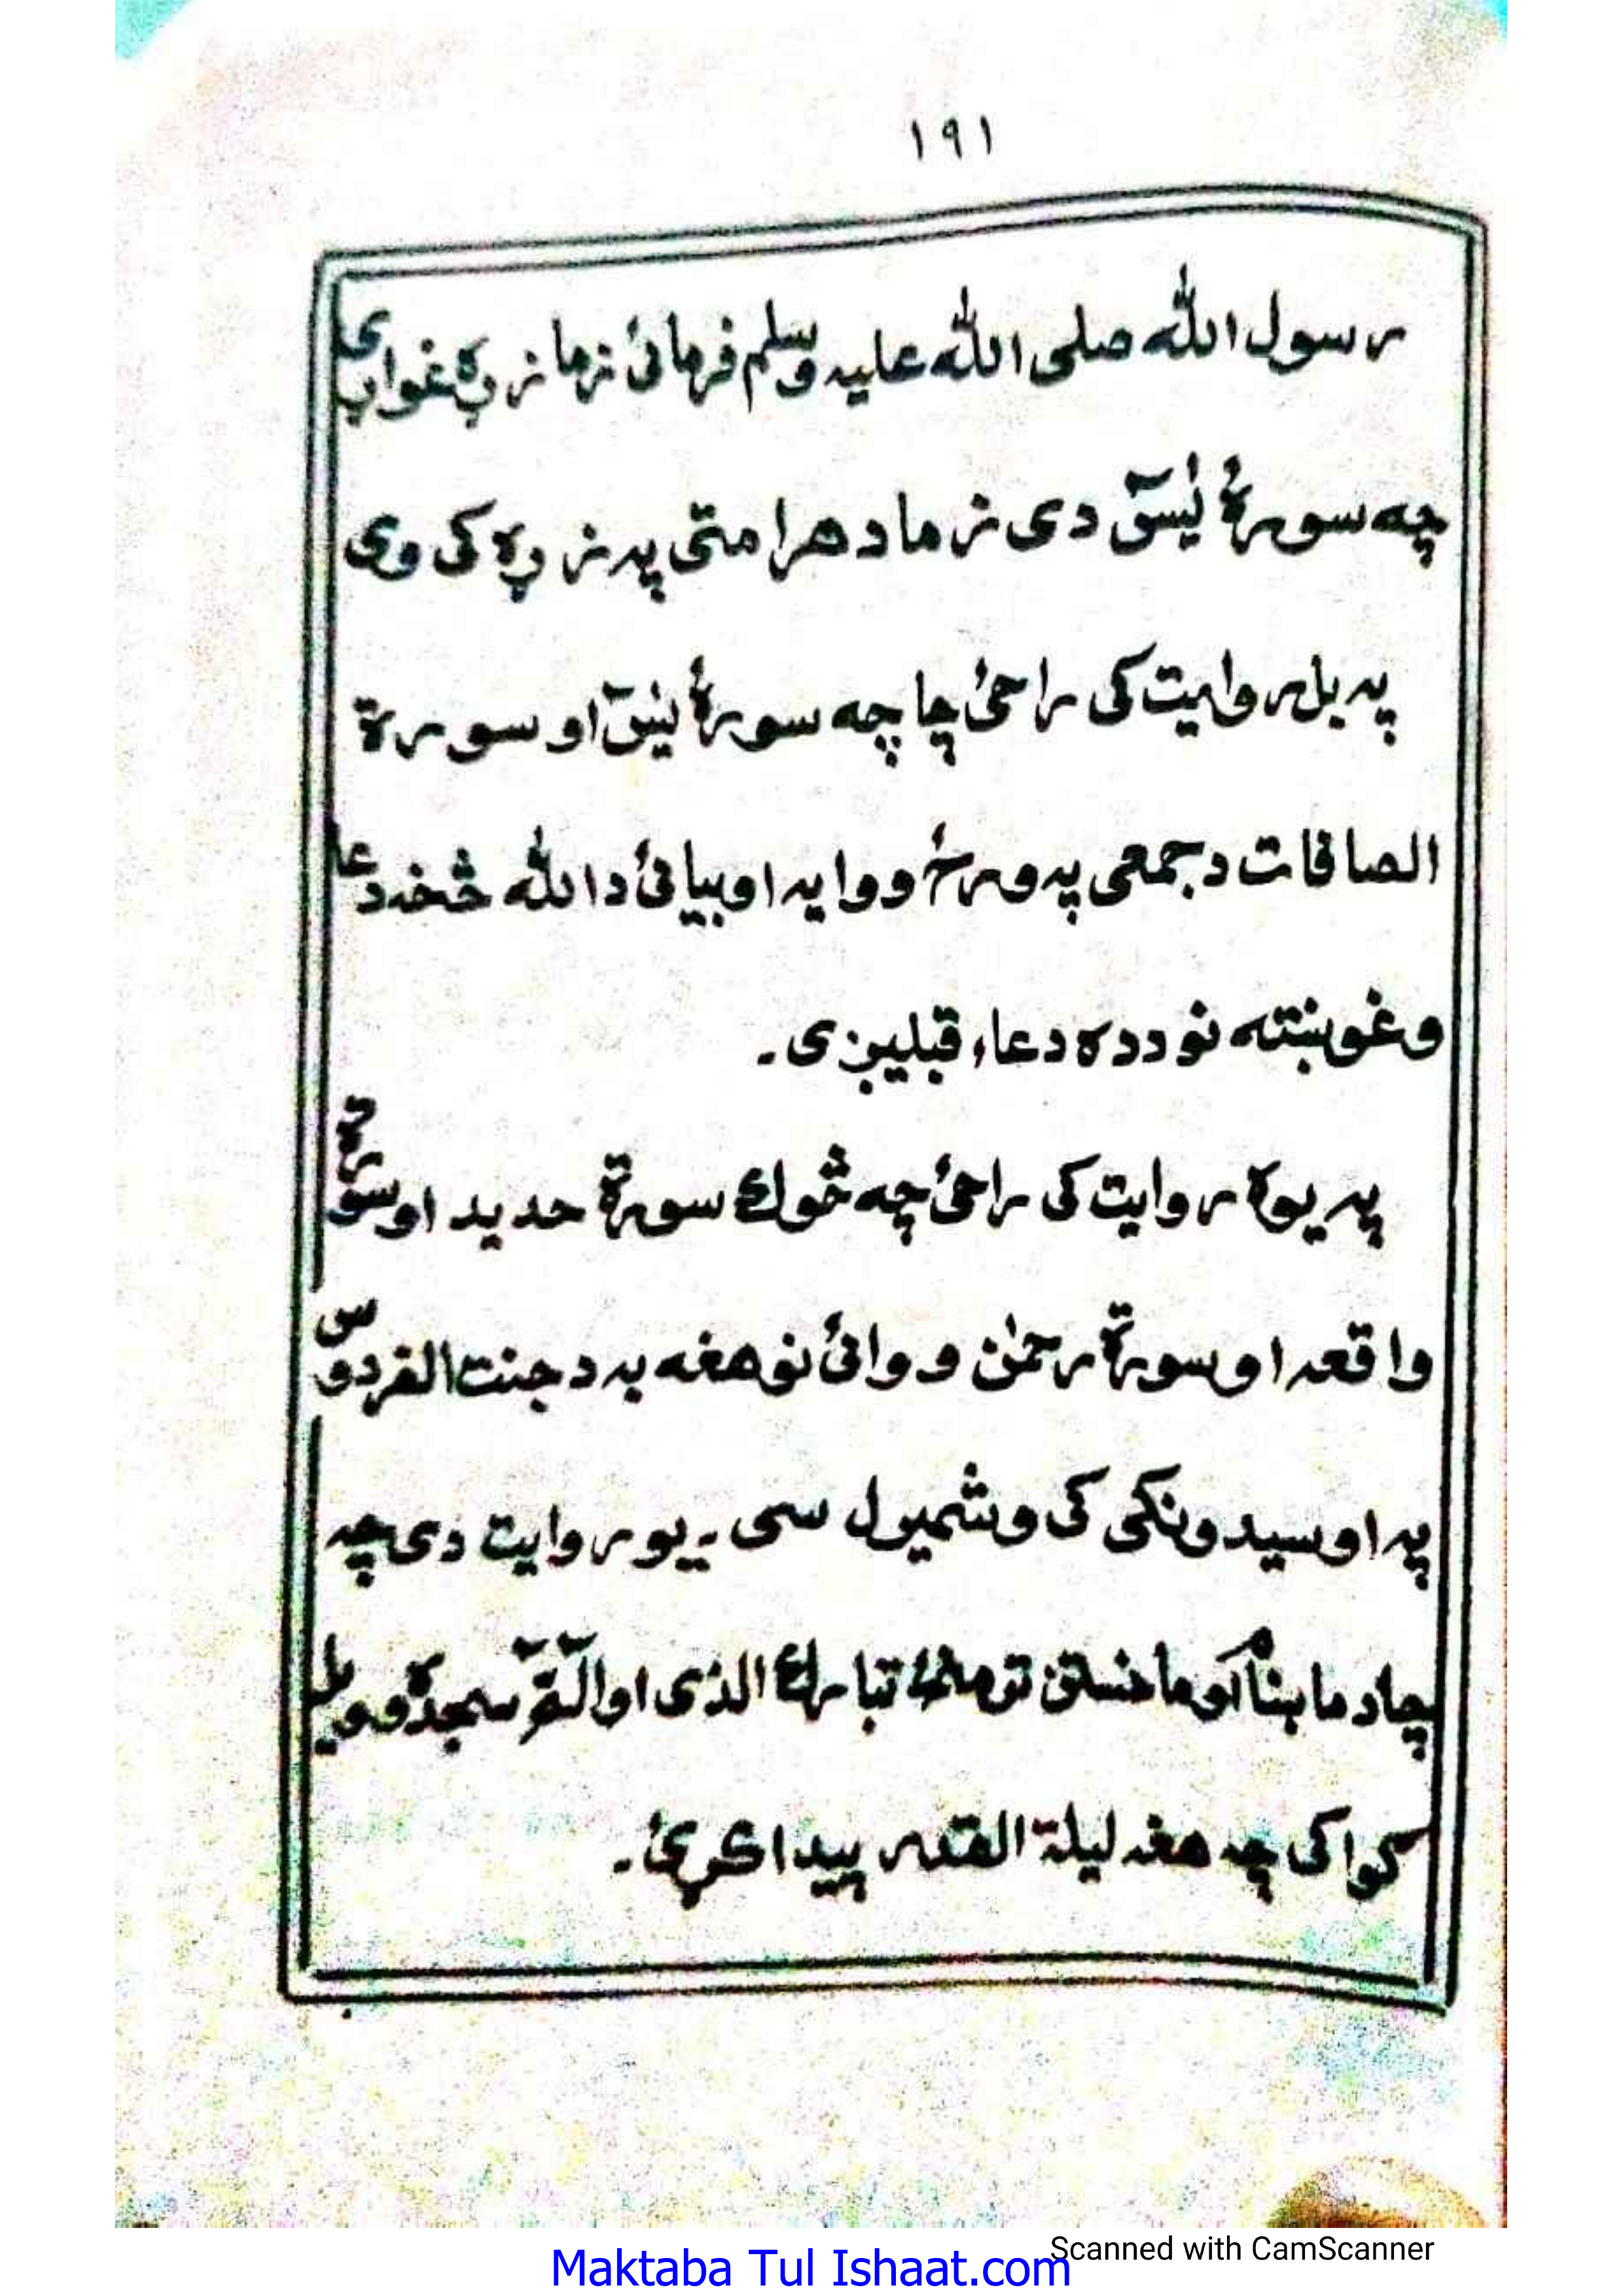 ١٩١
رسول الله صلى الله عليه وسلم فرمائی زما زړه غواړی
چه سورۀ یٰسٓ دی زما د هر امتی په زړه کی وی
په بل روایت کی راځی چا چه سورۀ یٰسٓ او سورة
الصافات د جمعی په ورځ ووایه او بیائی د الله څخه دعا
وغوښته نو دده دعاء قبلیږی۔
په یوه روایت کی راځی چه څوک سورة حدید او سورة
واقعه او سورة رحمٰن ووائی نو هغه به د جنت الفردوس
په اوسیدونکی کی وشمیول سی۔ یو روایت دی چه
چا د ماښام او ماخستن تر منځ تبارك الذی او الٓمّٓ سجده
کوا کی چه هغه لیلة القدر پیدا کړئ۔
Scanned with CamScanner
Maktaba Tul Ishaat.com